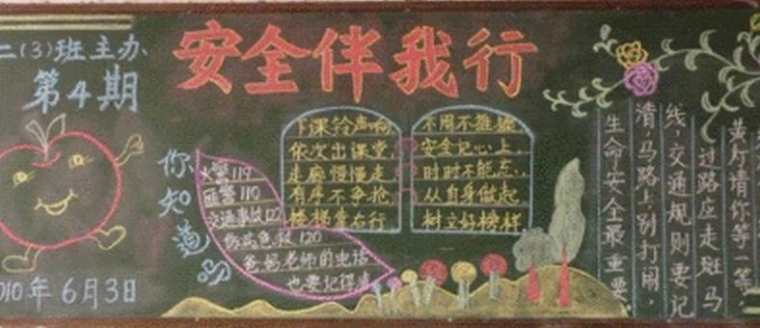 二(3)班主办
第4期
2010年6月3日
安全伴我行
你知道吗
火警119
匪警110
交通事故122
伤病急救120
爸妈老师的电话
也要记得清
下课铃声响,
依次出课堂,
走廊慢慢走
有序不争抢
楼梯靠右行
不用不推搡
安全记心上,
时时不能忘,
从自身做起
树立好榜样
黄灯请你等一等,
过路应走斑马
线,交通规则要记
清,马路上别打闹,
生命安全最重要。